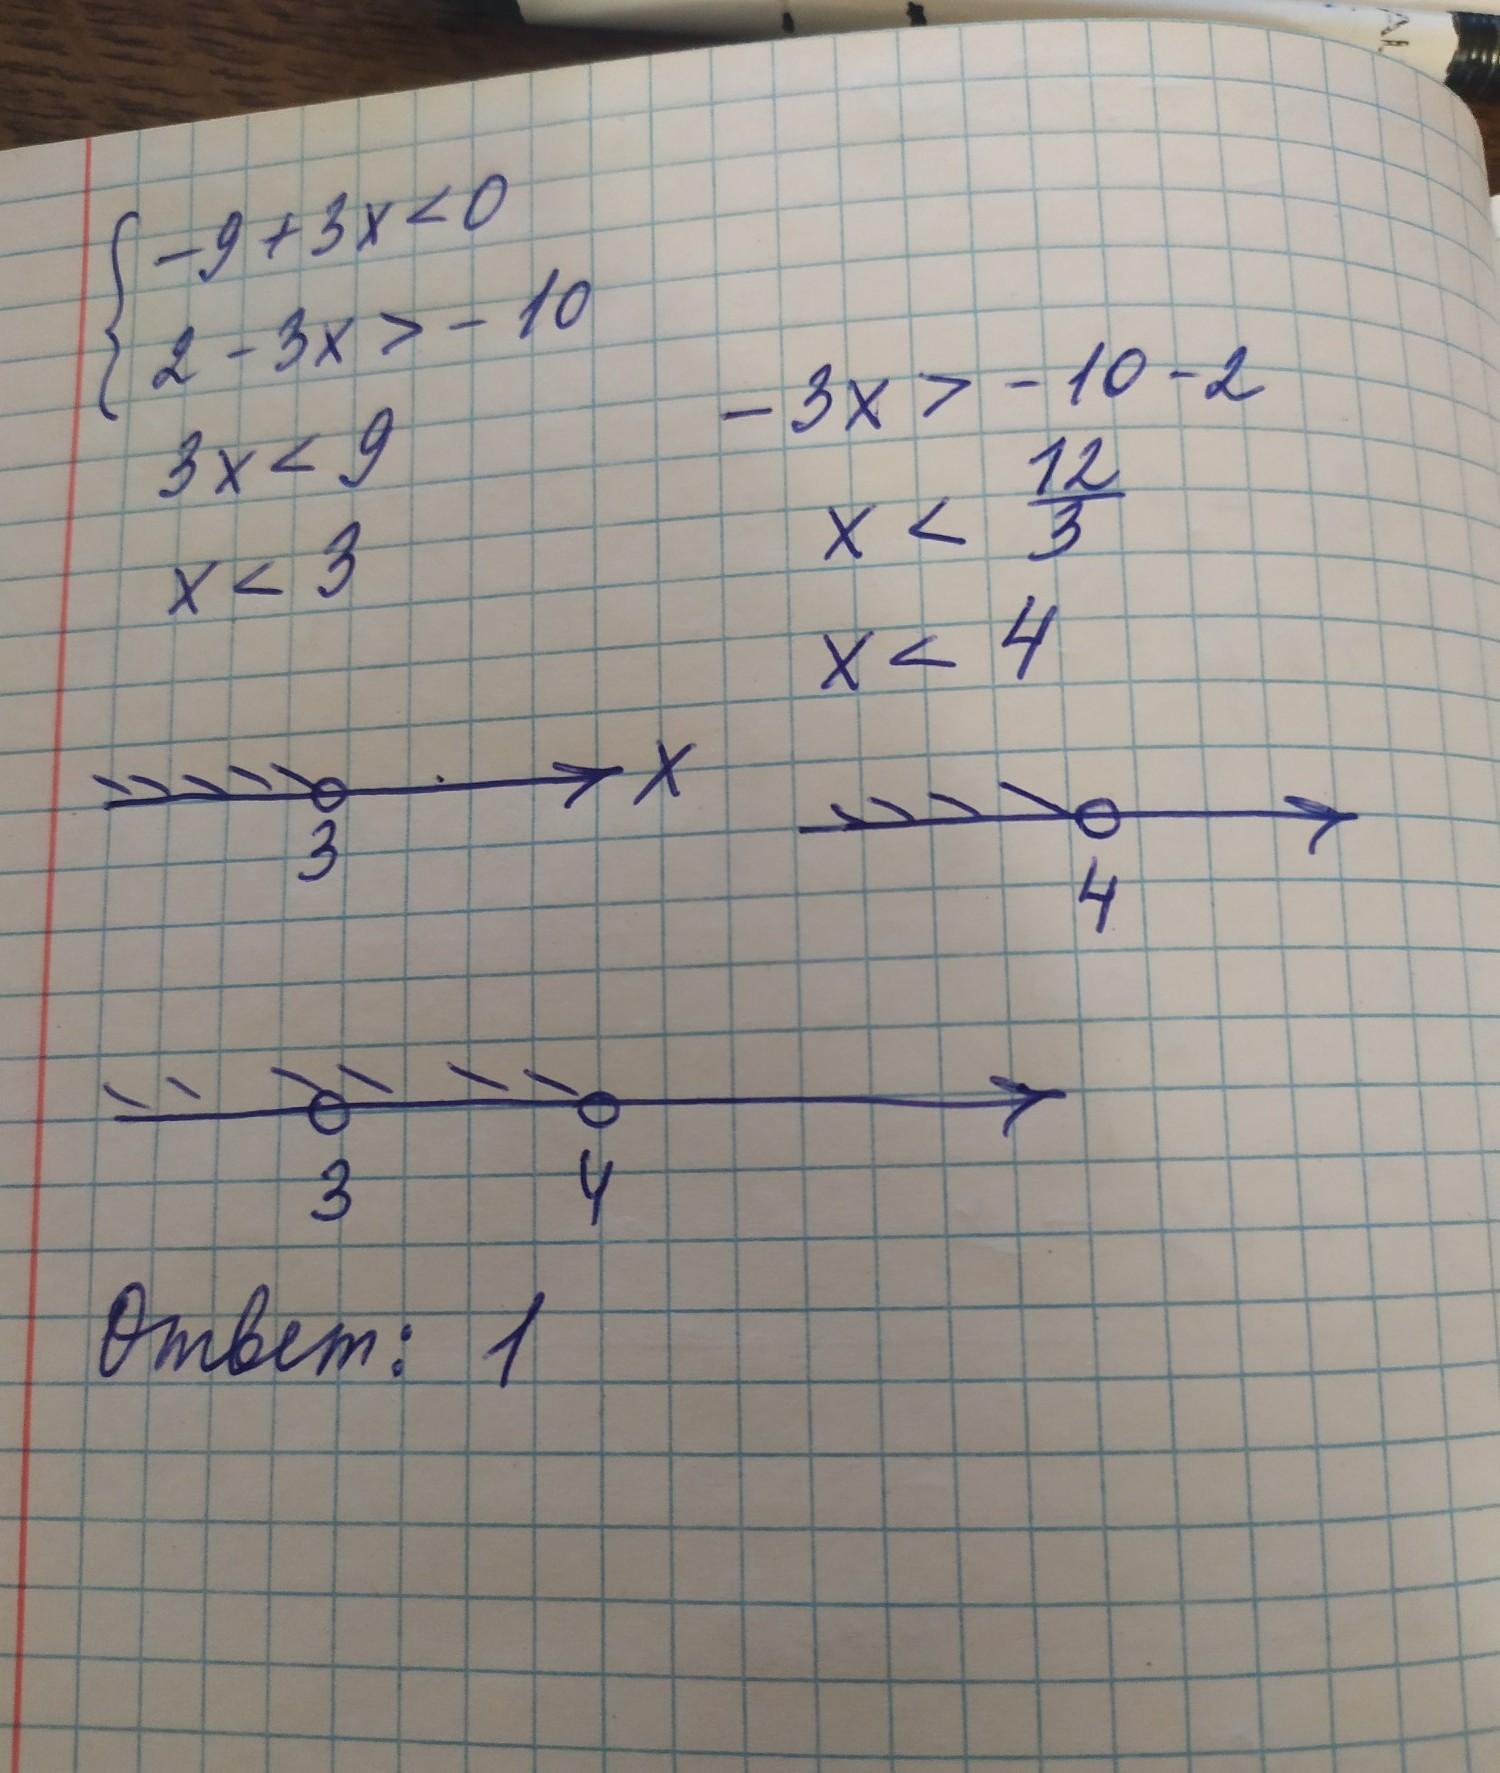 -9+3x<0
2-3x>-10
3x<9
x<3
-3x>-10-2
x<12/3
x<4
x
3
4
3 4
Ответ: 1